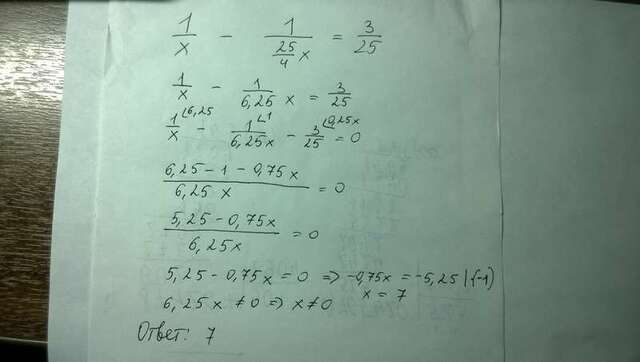 1/x - 1/(25/4 x) = 3/25
1/x - 1/6,25 x = 3/25
1/x ∟6,25 - 1/6,25x ∟1 - 3/25 ∟0,25x = 0
(6,25 - 1 - 0,75x)/(6,25 x) = 0
(5,25 - 0,75x)/(6,25x) = 0
5,25 - 0,75x = 0 => -0,75x = -5,25 |(-1)
x = 7
6,25x ≠ 0 => x ≠ 0
Ответ: 7